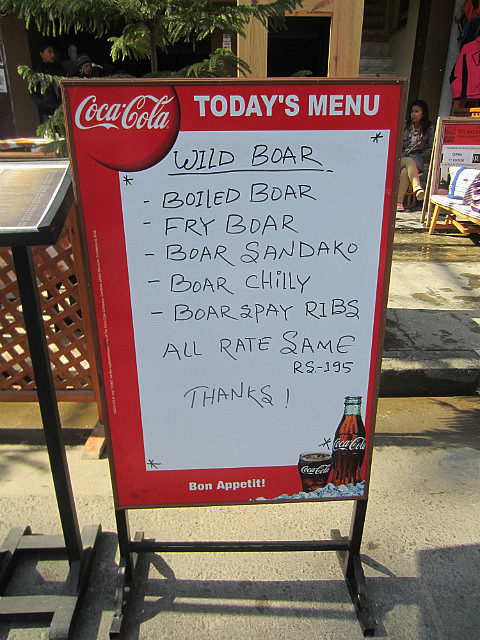 Coca-Cola
TODAY'S MENU
WILD BOAR
- BOILED BOAR
- FRY BOAR
- BOAR SANDAKO
- BOAR CHILLY
- BOAR SPAY RIBS
ALL RATE SAME
RS-195
THANKS!
Coca-Cola
Coca-Cola
Bon Appetit!
OPEN